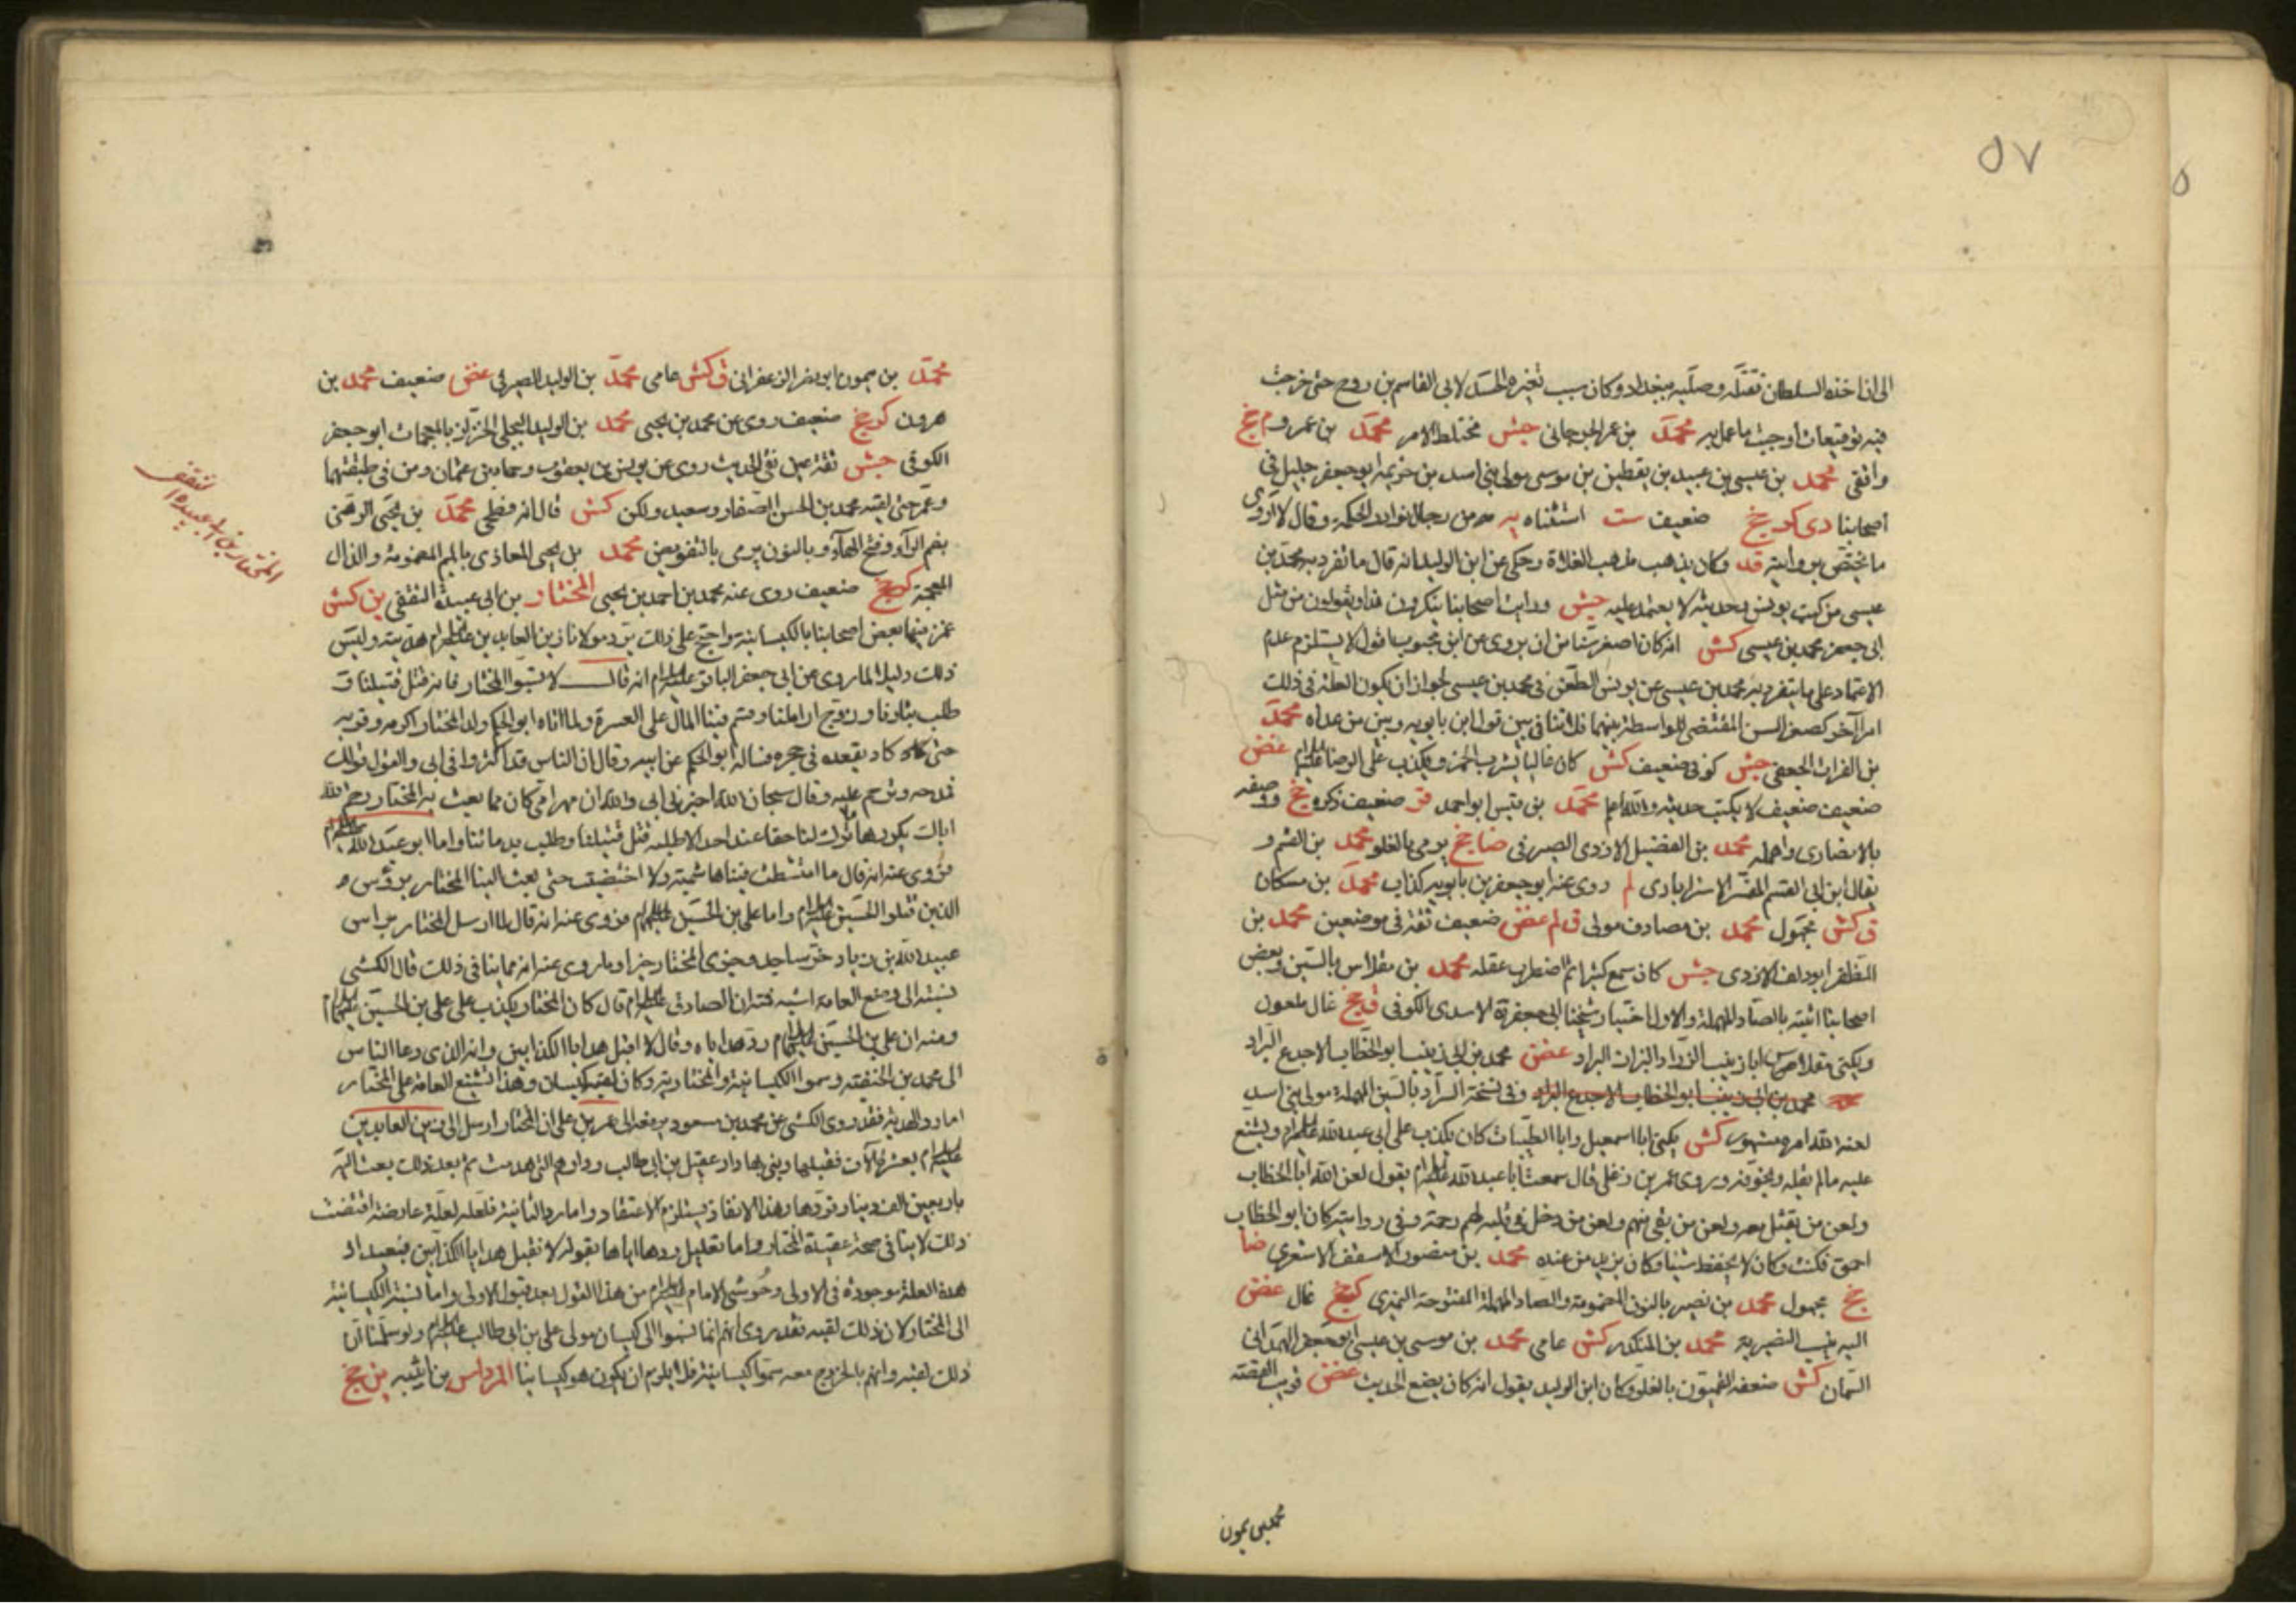 ٥٧
الى ان اخذه السلطان فقتله وصلبه ببغداد وكان سبب تغيره الحسد لابي القاسم بن روح حتى خرجت
فيه توقيعات أوجبت ما عمل به محمد بن عمر الجرجاني جش مختلط الامر محمد بن عمرو م جخ
واقفي محمد بن عيسى بن عبيد بن يقطين بن موسى مولى بني اسد بن خزيمة ابو جعفر جليل في
اصحابنا دى كر جخ ضعيف ست استثناه يه من رجال نوادر الحكمة وقال لا اروى
ما يختص بروايته قد وكان يذهب مذهب الغلاة وحكى عن ابن الوليد انه قال ما تفرد به محمد بن
عيسى من كتب يونس وحديثه لا يعتمد عليه جش ورايت اصحابنا ينكرون هذا ويقولون من مثل
ابي جعفر محمد بن عيسى كش انه كان اصغر سنا من ان يروى عن ابن محبوب اقول لا يستلزم عدم
الاعتماد على ما يتفرد به محمد بن عيسى عن يونس الطعن في محمد بن عيسى لجواز ان يكون العلة في ذلك
امرا آخر كصغر السن المقتضى للواسطة بينهما فلا تنافي بين قول ابن بابويه وبين من عداه محمد
بن الفرات الجعفي جش كوفي ضعيف كش كان غاليا يشرب الخمر ويكذب على الرضا عليه السلام غض
ضعيف ضعيف لا يكتب حديثه والله اعلم محمد بن قيس ابو احمد قر ضعيف ذكره جخ ووصفه
بالانصارى واهمله محمد بن الفضيل الازدى الصيرفي ضا جخ يرمى بالغلو محمد بن القسم و
يقال ابن ابي القسم المفسر الاسترابادى لم روى عنه ابو جعفر بن بابويه كذاب محمد بن مسكان
ق كش مجهول محمد بن مصادف مولى ق م غض ضعيف ثقة في موضعين محمد بن
المظفر ابو دلف الازدى جش كان سمع كثيرا ثم اضطرب عقله محمد بن مقلاس بالسين وبعض
اصحابنا اثبته بالصاد المهملة والاول اختيار شيخنا ابي جعفر ره الاسدى الكوفي ق جخ غال ملعون
ويكنى مقلاص ابا زينب الزراد البزاز البراد غض محمد بن ابي زينب ابو الخطاب الاجدع الزراد
محمد بن ابي زينب ابو الخطاب الاجدع الزراد وفي نسخة السراد بالسين المهملة مولى بني اسد
لعنه الله امره مشهور كش يكنى ابا اسمعيل وابا الطيبات كان يكذب على ابي عبد الله عليه السلام ويشنع
عليه ما لم يقله ويخوفه ويروى عمر بن قال سمعت ابا عبد الله عليه السلام يقول لعن الله ابا الخطاب
ولعن من يقتل معه ولعن من بقى منهم ولعن من دخل في قلبه لهم رحمة وفي روايته كان ابو الخطاب
احمق فكنت وكان لا يحفظ شيئا وكان يزيد من عنده محمد بن منصور الاشعرى ضا
جخ مجهول محمد بن نصير بالنون المضمومة والصاد المهملة المفتوحة النميرى كر جخ غال غض
اليه ينسب النصيرية محمد بن المنكدر كش عامي محمد بن موسى بن عيسى ابو جعفر الهمداني
السمان كش ضعفه القميون بالغلو وكان ابن الوليد يقول انه كان يضع الحديث غض
محمد بن ميمون
محمد بن ميمون ابو نصر الزعفراني ق كش عامي محمد بن الوليد الصيرفي غض ضعيف محمد بن
هرون كر جخ ضعيف روى عن محمد بن يحيى محمد بن الوليد البجلي الخزاز بالمعجمات ابو جعفر
الكوفي جش ثقة عين نقي الحديث روى عن يونس بن يعقوب وحماد بن عثمان ومن في طبقتهما
وعمر حتى لقيه محمد بن الحسن الصفار وسعد ولكن كش قال انه فطحي محمد بن يحيى الرهني
بضم الراء وفتح الهاء وبالنون يرمى بالتفويض محمد بن يحيى المعاذى بالميم المضمومة والذال
المعجمة كر جخ ضعيف روى عنه محمد بن احمد بن يحيى المختار بن ابي عبيدة الثقفي ين كش
غمز فيه بعض اصحابنا بالكيسانية واحتج على ذلك برد مولانا زين العابدين عليه السلام هديته وليس
ذلك دليلا لما روى عن ابي جعفر الباقر عليه السلام انه قال لا تسبوا المختار فانه قتل قتلتنا و
طلب بثارنا وزوج اراملنا وقسم فينا المال على العسرة ولما اتاه ابو الحكم ولد المختار اكرمه وقربه
حتى كاد يقعده في حجره فساله ابو الحكم عن ابيه وقال ان الناس قد اكثروا في ابي والقول قولك
فمدحه وترحم عليه وقال سبحان الله اخبرني ابي والله ان مهر امي كان مما بعث به المختار رحم الله
اباك يكررها ما ترك لنا حقا عند احد الا طلبه قتل قتلتنا وطلب بدمائنا واما ابو عبد الله عليه السلام
فروى عنه انه قال ما امتشطت فينا هاشمية ولا اختضبت حتى بعث الينا المختار برؤس
الذين قتلوا الحسين عليه السلام واما علي بن الحسين عليهما السلام فروى عنه انه قال لما ارسل المختار براس
عبيد الله بن زياد خر ساجدا وجزى المختار خيرا وما روى عنه انه مما ينافي ذلك قال الكشي
نسبته الى وضع العامة اشبه فمنه ان الصادق عليه السلام قال كان المختار يكذب على علي بن الحسين عليهما السلام
ومنه ان علي بن الحسين عليهما السلام رد هداياه وقال لا اقبل هدايا الكذابين وانه الذى دعا الناس
الى محمد بن الحنفية وسموا الكيسانية والمختارية وكان لقبه كيسان وهذا تشنع العامة على المختار
اما رد الهدية فقد روى الكشي عن محمد بن مسعود يرفعه الى عمر بن علي ان المختار ارسل الى زين العابدين
عليه السلام بعشرين الاف فقبلها وبنى بها دار عقيل بن ابي طالب ودارهم التي هدمت ثم بعد ذلك بعث اليه
باربعين الف دينار فردها وهذا الانفاذ يستلزم الاعتقاد واما رد الثانية فلعله لعلة عارضة اقتضت
ذلك لا ينافي صحة عقيدة المختار واما تعليل ردها اياها بقوله لا نقبل هدايا الكذابين فبعيد اذ
هذه العلة موجودة في الاولى وحوشي الامام عليه السلام من هذا القول بعد قبول الاولى واما نسبة الكيسانية
الى المختار ولان ذلك لقبه فقد روى انهم انما نسبوا الى كيسان مولى علي بن ابي طالب عليه السلام ولو سلمنا ان
ذلك لقبه وانهم بالخروج معه سموا كيسانية فلا يلزم ان يكون هو كيسانيا المرداس بن ين جخ
المختار بن ابي عبيدة الثقفي